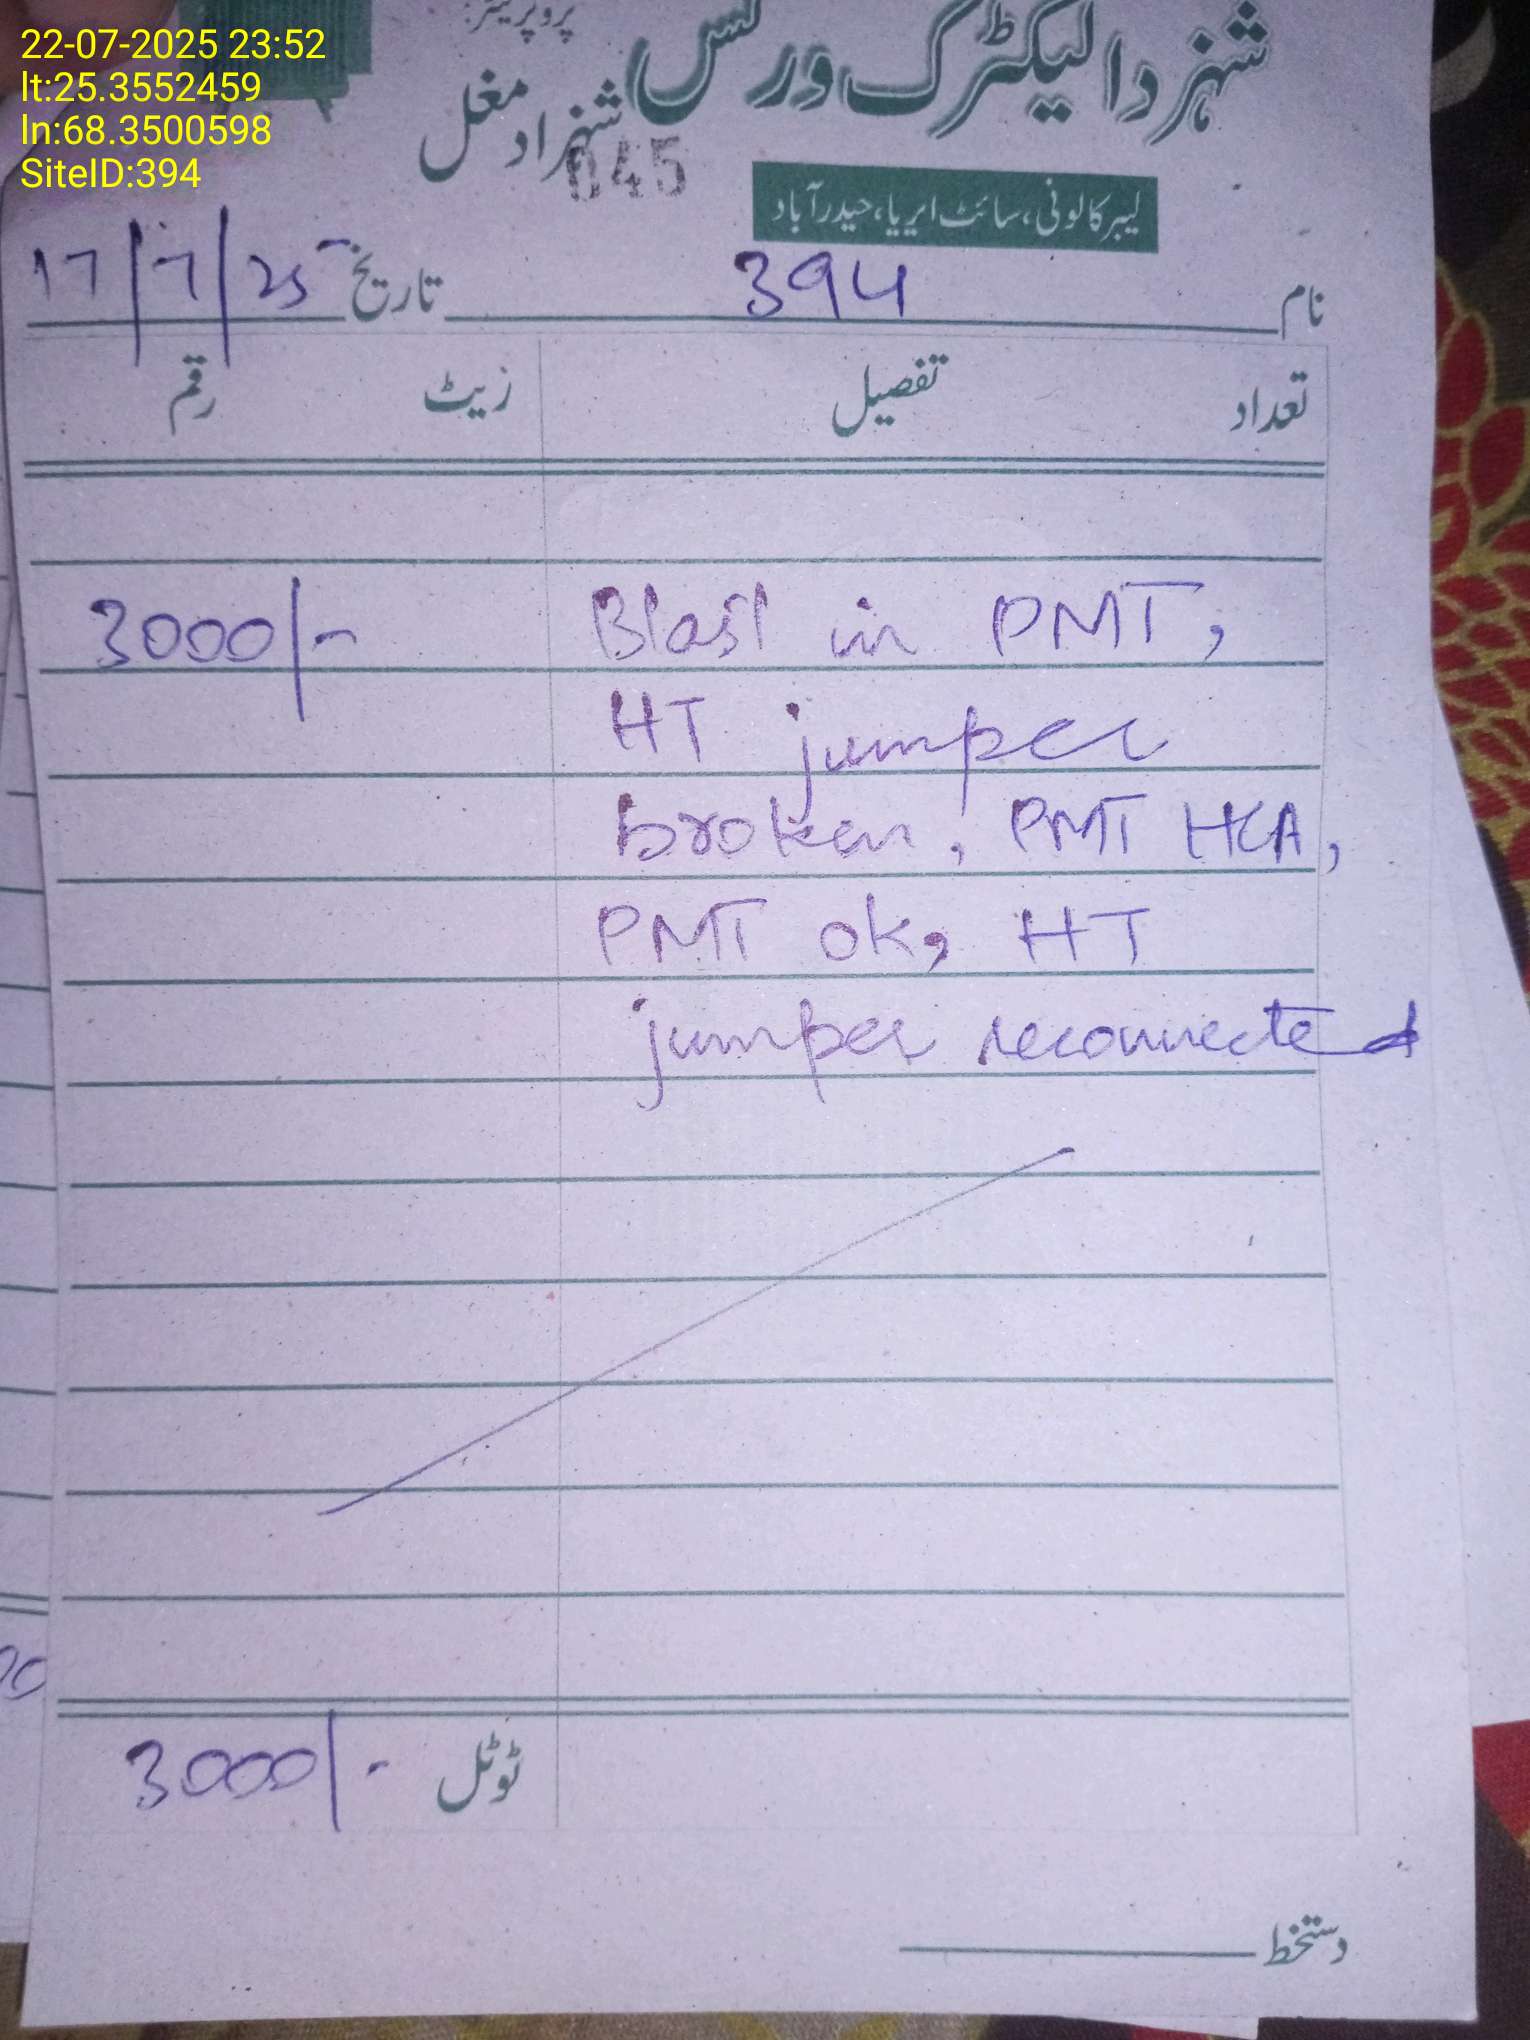 22-07-2025 23:52
lt:25.3552459
ln:68.3500598
SiteID:394
شہزادالیکٹرک ورکس
پروپرائیٹر:
شہزاد مغل
045
لیبر کالونی، سائٹ ایریا، حیدرآباد
نام 394 تاریخ 17/7/25
تعداد تفصیل ریٹ رقم
Blast in PMT, 3000/-
HT jumper
broken, PMT HCA,
PMT ok, HT
jumper reconnected
ٹوٹل 3000/-
دستخط